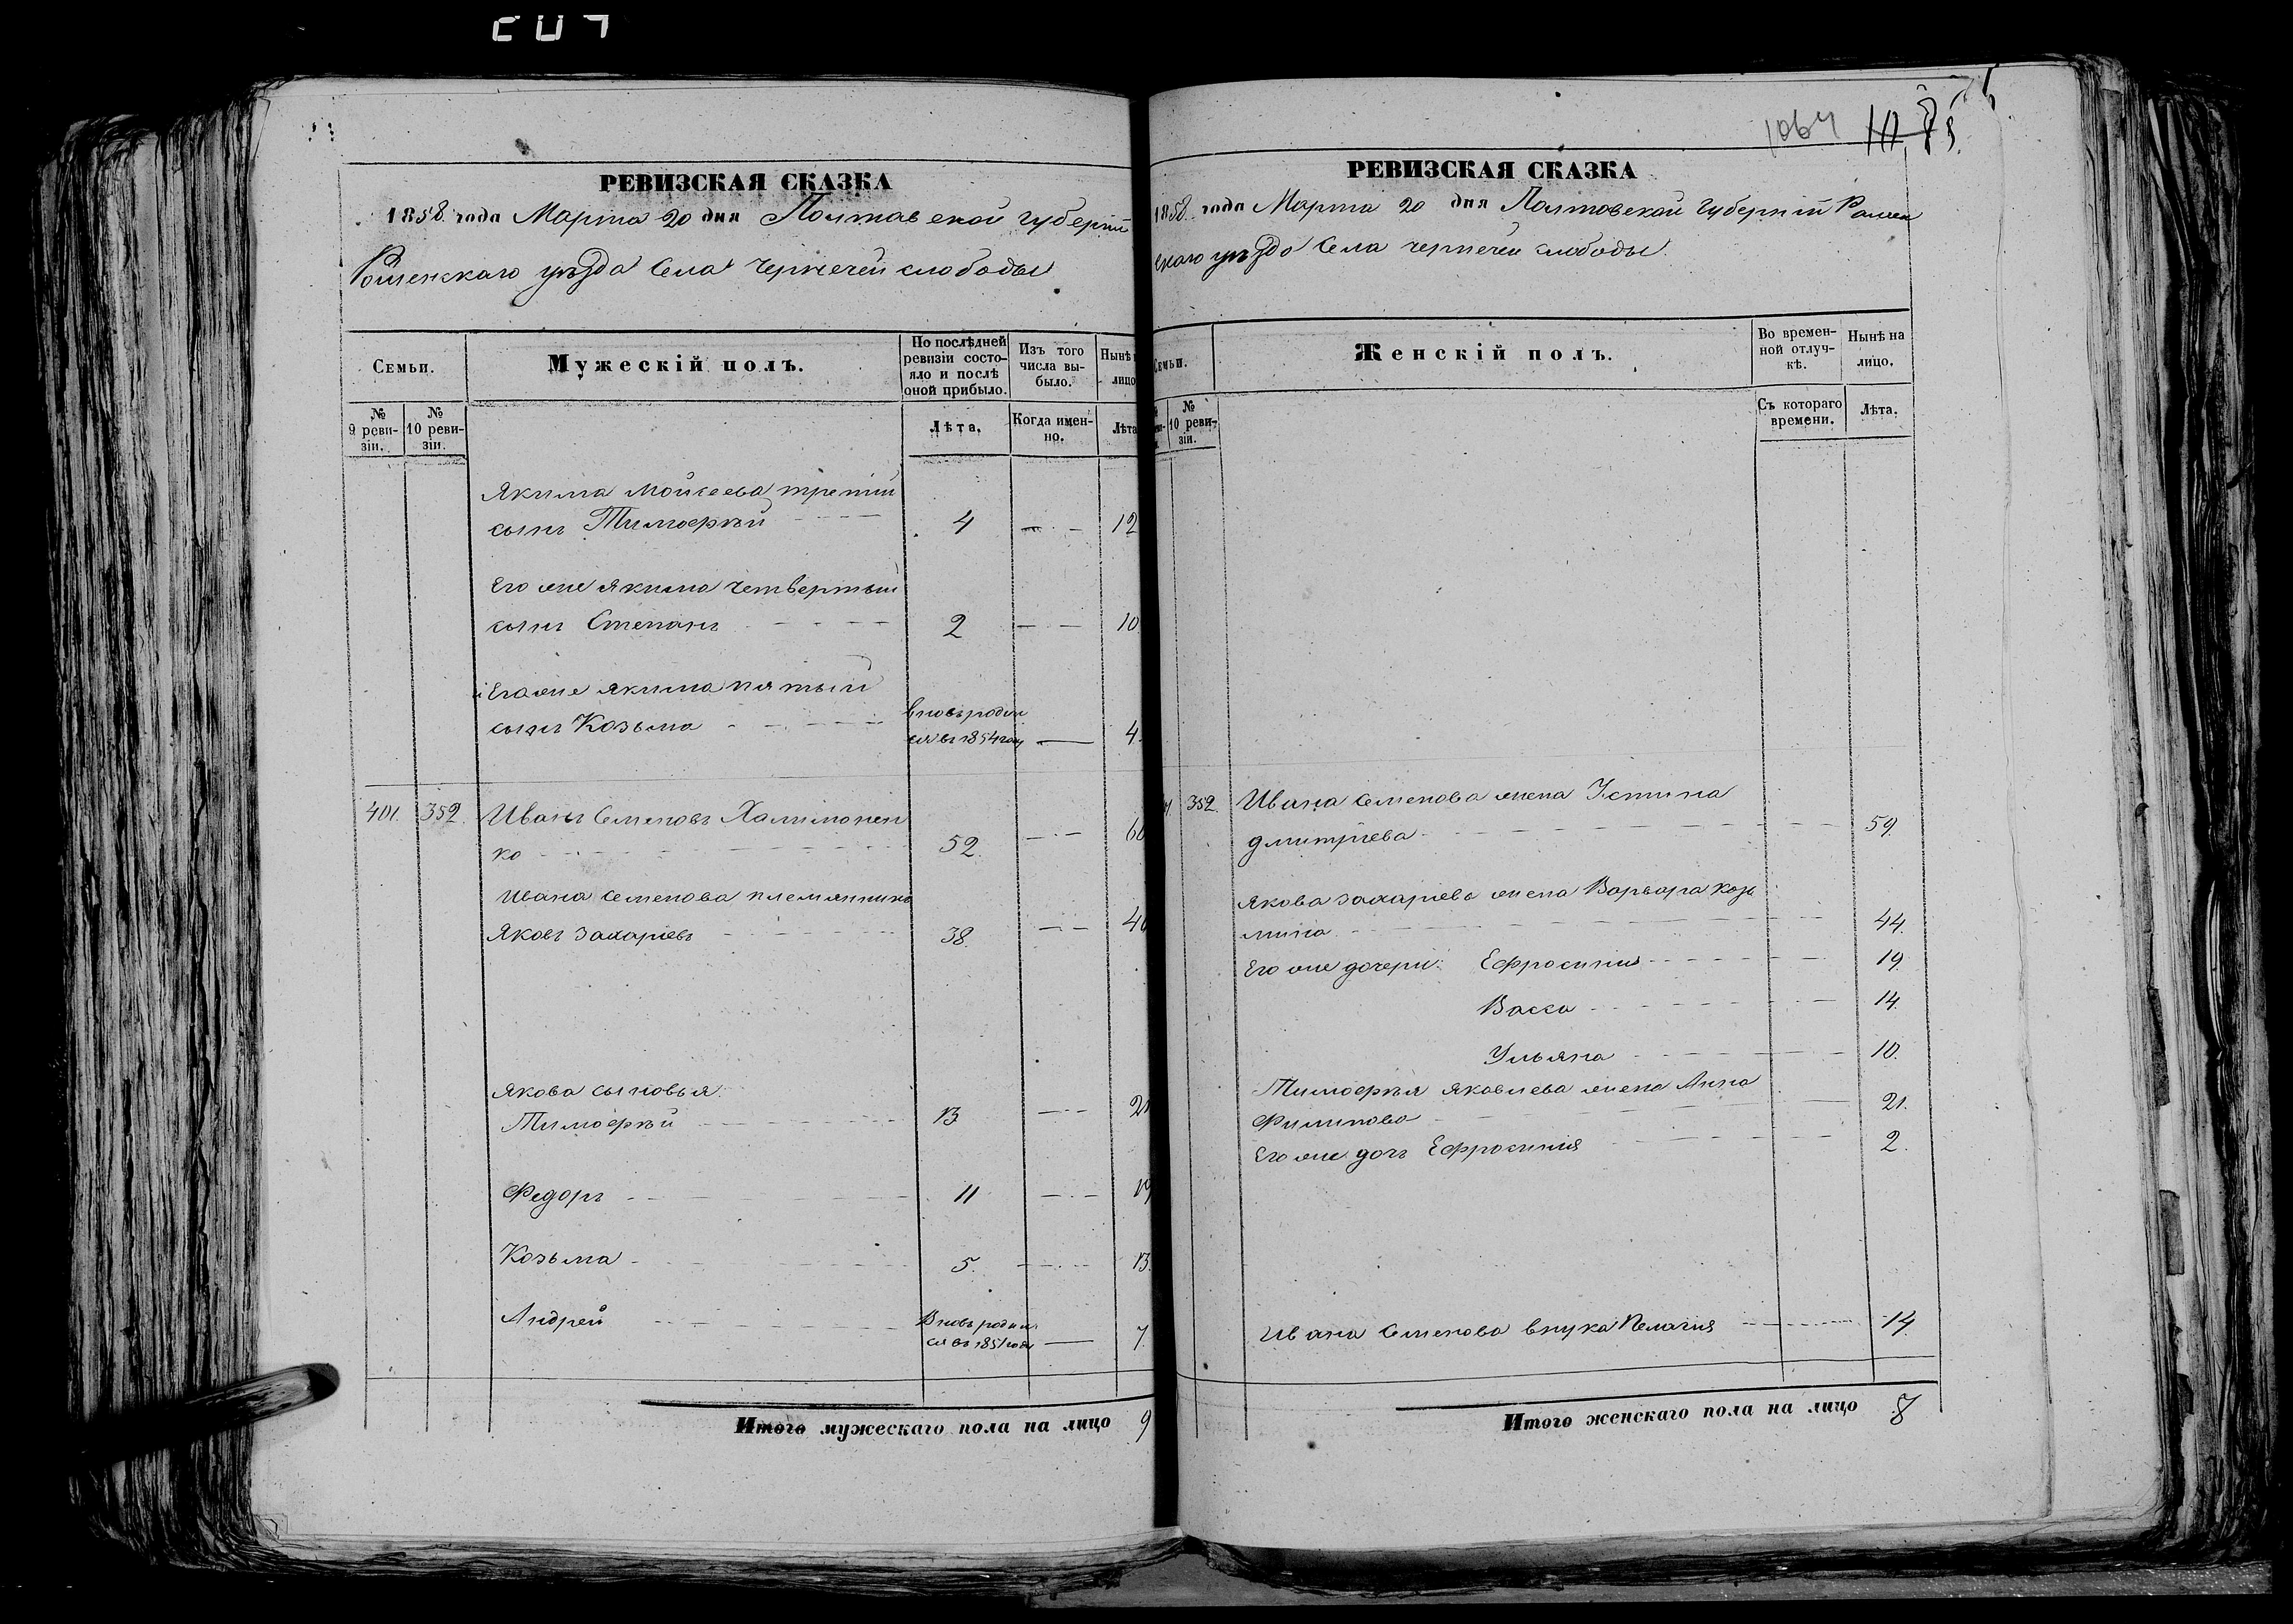 РЕВИЗСКАЯ СКАЗКА
1858 года Марта 20 дня Полтавской губерніи
Роменскаго уѣзда Села Чернечей слободы
Семьи.
Мужескій полъ.
По послѣдней ревизіи состояло и послѣ оной прибыло.
Изъ того числа выбыло.
Нынѣ
лицо
№ 9 ревизіи.
№ 10 ревизіи.
Лѣта.
Когда именно.
Лѣта
Якима Мойсеева третій
сынъ Тимофѣй 4 12
Его же Якима четвертый
сынъ Степанъ 2 10
Его же Якима пятый
сынъ Козьма вновь родил
ся въ 1854 году 4.
401. 352. Иванъ Семеновъ Халимонен
ко 52. 60
Ивана Семенова племянникъ
Яковъ Захаріевъ 38. 46
Якова сыновья:
Тимофѣй 13 21
Федоръ 11 19
Козьма 5. 13.
Андрей Вновь родил
ся въ 1851 году 7.
Итого мужескаго пола на лицо 9
1064
РЕВИЗСКАЯ СКАЗКА
1858 года Марта 20 дня Полтавской губерніи Ромен
скаго уѣзда Села чернечей слободы.
Семьи.
Женскій полъ.
Во временной отлучкѣ.
Нынѣ на лицо.
№ 10 ревизіи.
Съ котораго времени.
Лѣта.
352. Ивана Семенова жена Устина
Дмитріева 59.
Якова Захаріева жена Варвара Козь
мина 44.
Его же дочери: Ефросинія 19.
Васса 14.
Ульяна 10.
Тимофѣя Яковлева жена Анна
Филипова 21.
Его же дочь Ефросинія 2.
Ивана Семенова внука Пелагия 14.
Итого женскаго пола на лицо 8